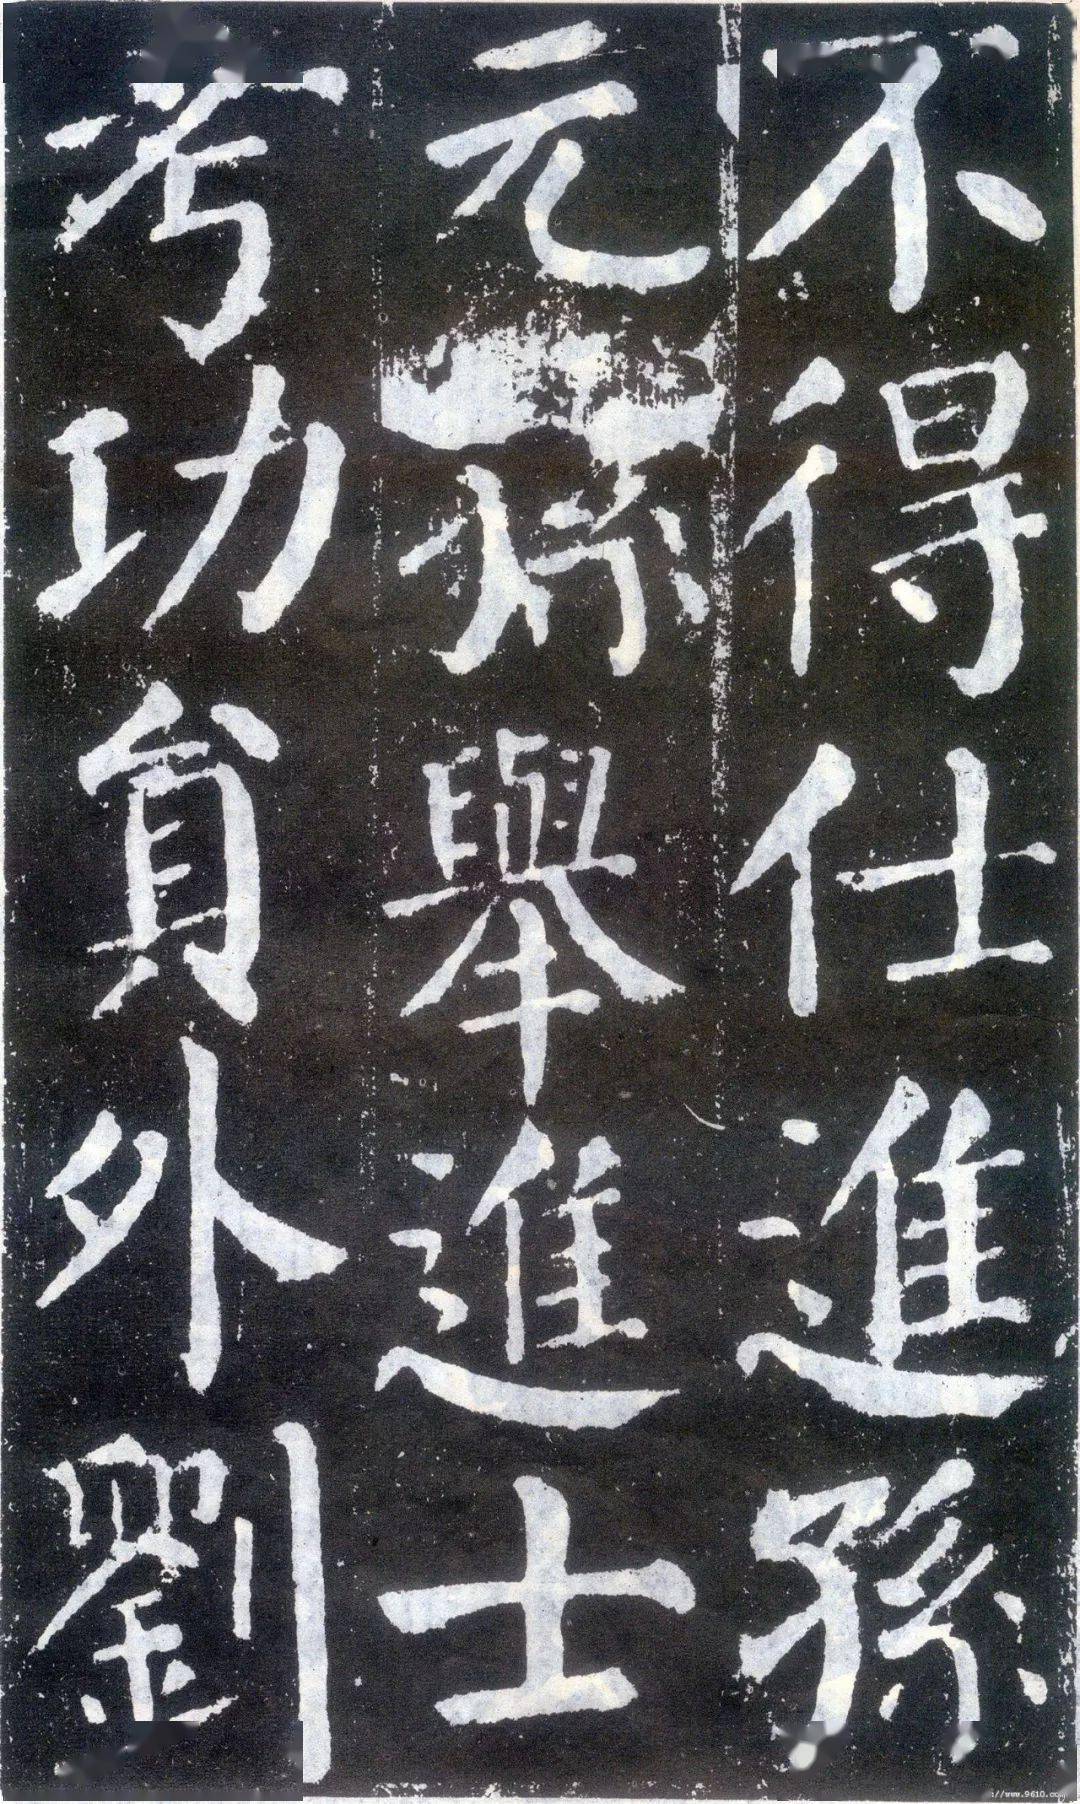 不得仕進孫
元孫舉進士
考功員外劉
://www.9610.com